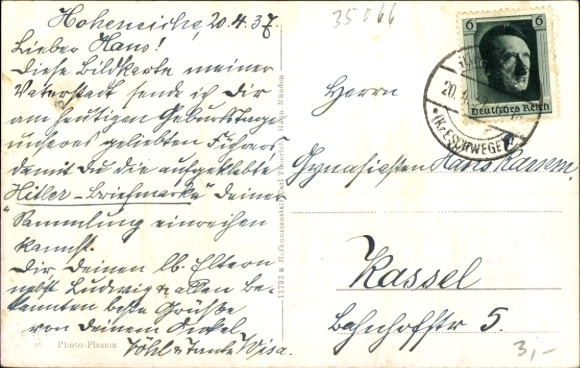 Hoheneiche, 20.4.37
Lieber Hans!
Diese Bildkarte meiner
Vaterstadt sende ich Dir
am heutigen Geburtstage
unseres geliebten Führers
damit Du die aufgeklebte
"Hitler-Briefmarke" Deiner
"Sammlung einreihen
kannst.
Dir, Deinen lb. Eltern
nebst Ludwig u. allen Be-
kannten beste Grüße
von Deinem Onkel
u. Tante
Photo-Plasma
11792 a Hofkunstanstalt Carl Thoericht, Hann. Münden
35066
6 6
Deutsches Reich
20.
* (Kr. ESCHWEGE)
Herrn
Gymnasiasten Hans
Kassel
Bahnhofstr 5.
3,-